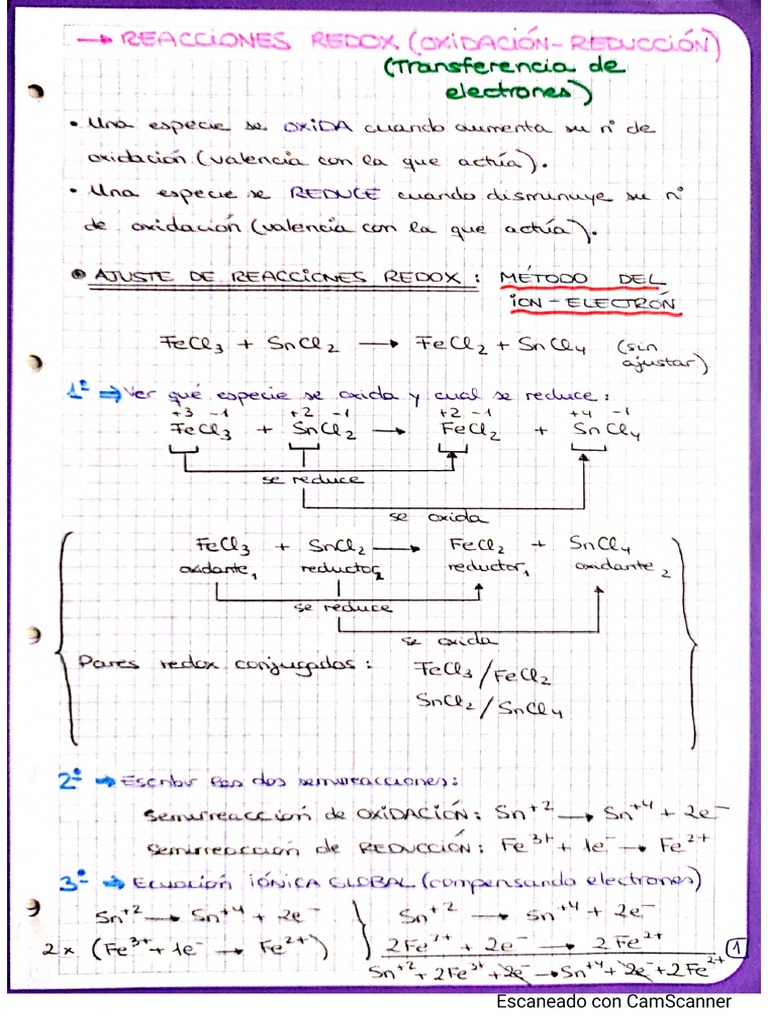 → REACCIONES REDOX (OXIDACIÓN-REDUCCIÓN)
(Transferencia de
electrones)
• Una especie se OXIDA cuando aumenta su nº de
oxidación (valencia con la que actúa).
• Una especie se REDUCE cuando disminuye su nº
de oxidación (valencia con la que actúa).
• AJUSTE DE REACCIONES REDOX: MÉTODO DEL
ION-ELECTRÓN
FeCl₃ + SnCl₂ → FeCl₂ + SnCl₄ (sin
ajustar)
1º ⇒ Ver qué especie se oxida y cual se reduce:
+3 -1 +2 -1 +2 -1 +4 -1
FeCl₃ + SnCl₂ → FeCl₂ + SnCl₄
se reduce
se oxida
FeCl₃ + SnCl₂ → FeCl₂ + SnCl₄
oxidante₁ reductor₂ reductor₁ oxidante₂
se reduce
se oxida
Pares redox conjugados: FeCl₃/FeCl₂
SnCl₂/SnCl₄
2º ⇒ Escribir las dos semirreacciones:
Semirreacción de OXIDACIÓN: Sn⁺² → Sn⁺⁴ + 2e⁻
Semirreacción de REDUCCIÓN: Fe³⁺ + 1e⁻ → Fe²⁺
3º ⇒ ECUACIÓN IÓNICA GLOBAL (compensando electrones)
Sn⁺² → Sn⁺⁴ + 2e⁻ } Sn⁺² → Sn⁺⁴ + 2e⁻
2 x (Fe³⁺ + 1e⁻ → Fe²⁺) 2Fe³⁺ + 2e⁻ → 2Fe²⁺
Sn⁺² + 2Fe³⁺ + 2e⁻ → Sn⁺⁴ + 2e⁻ + 2Fe²⁺
1
Escaneado con CamScanner